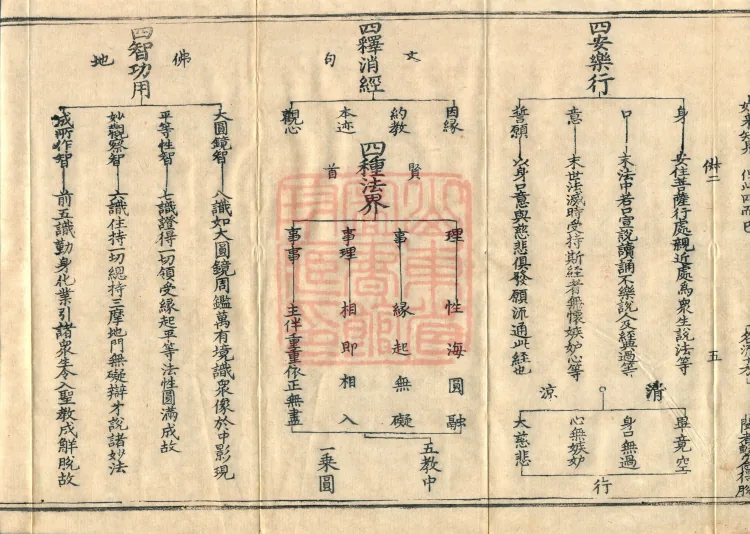 四安樂行
身 安住菩薩行處親近處為衆生說法等
口 末法中若口宣說讀誦不樂說人及經典過等
意 末世法滅時受持斯經者無懷嫉妒心等
誓願 以身口意與慈悲俱發願流通此經也
清
凉
畢竟空
身口無過
心無嫉妒
大慈悲
行
五
四釋消經
文
句
因緣
約教
本迹
觀心
四種法界
賢
首
理 性海圓融
事 緣起無礙
事理 相即相入
事事 主伴重重依正無盡
五教中
一乘圓
四智功用
佛
地
大圓鏡智 八識如大圓鏡周鑑萬有境識衆像於中影現
平等性智 七識證得一切領受緣起平等法性圓滿成故
妙觀察智 六識住持一切總持三摩地門無礙辯才說諸妙法
成所作智 前五識勤身化業引諸衆生令入聖教成解脫故